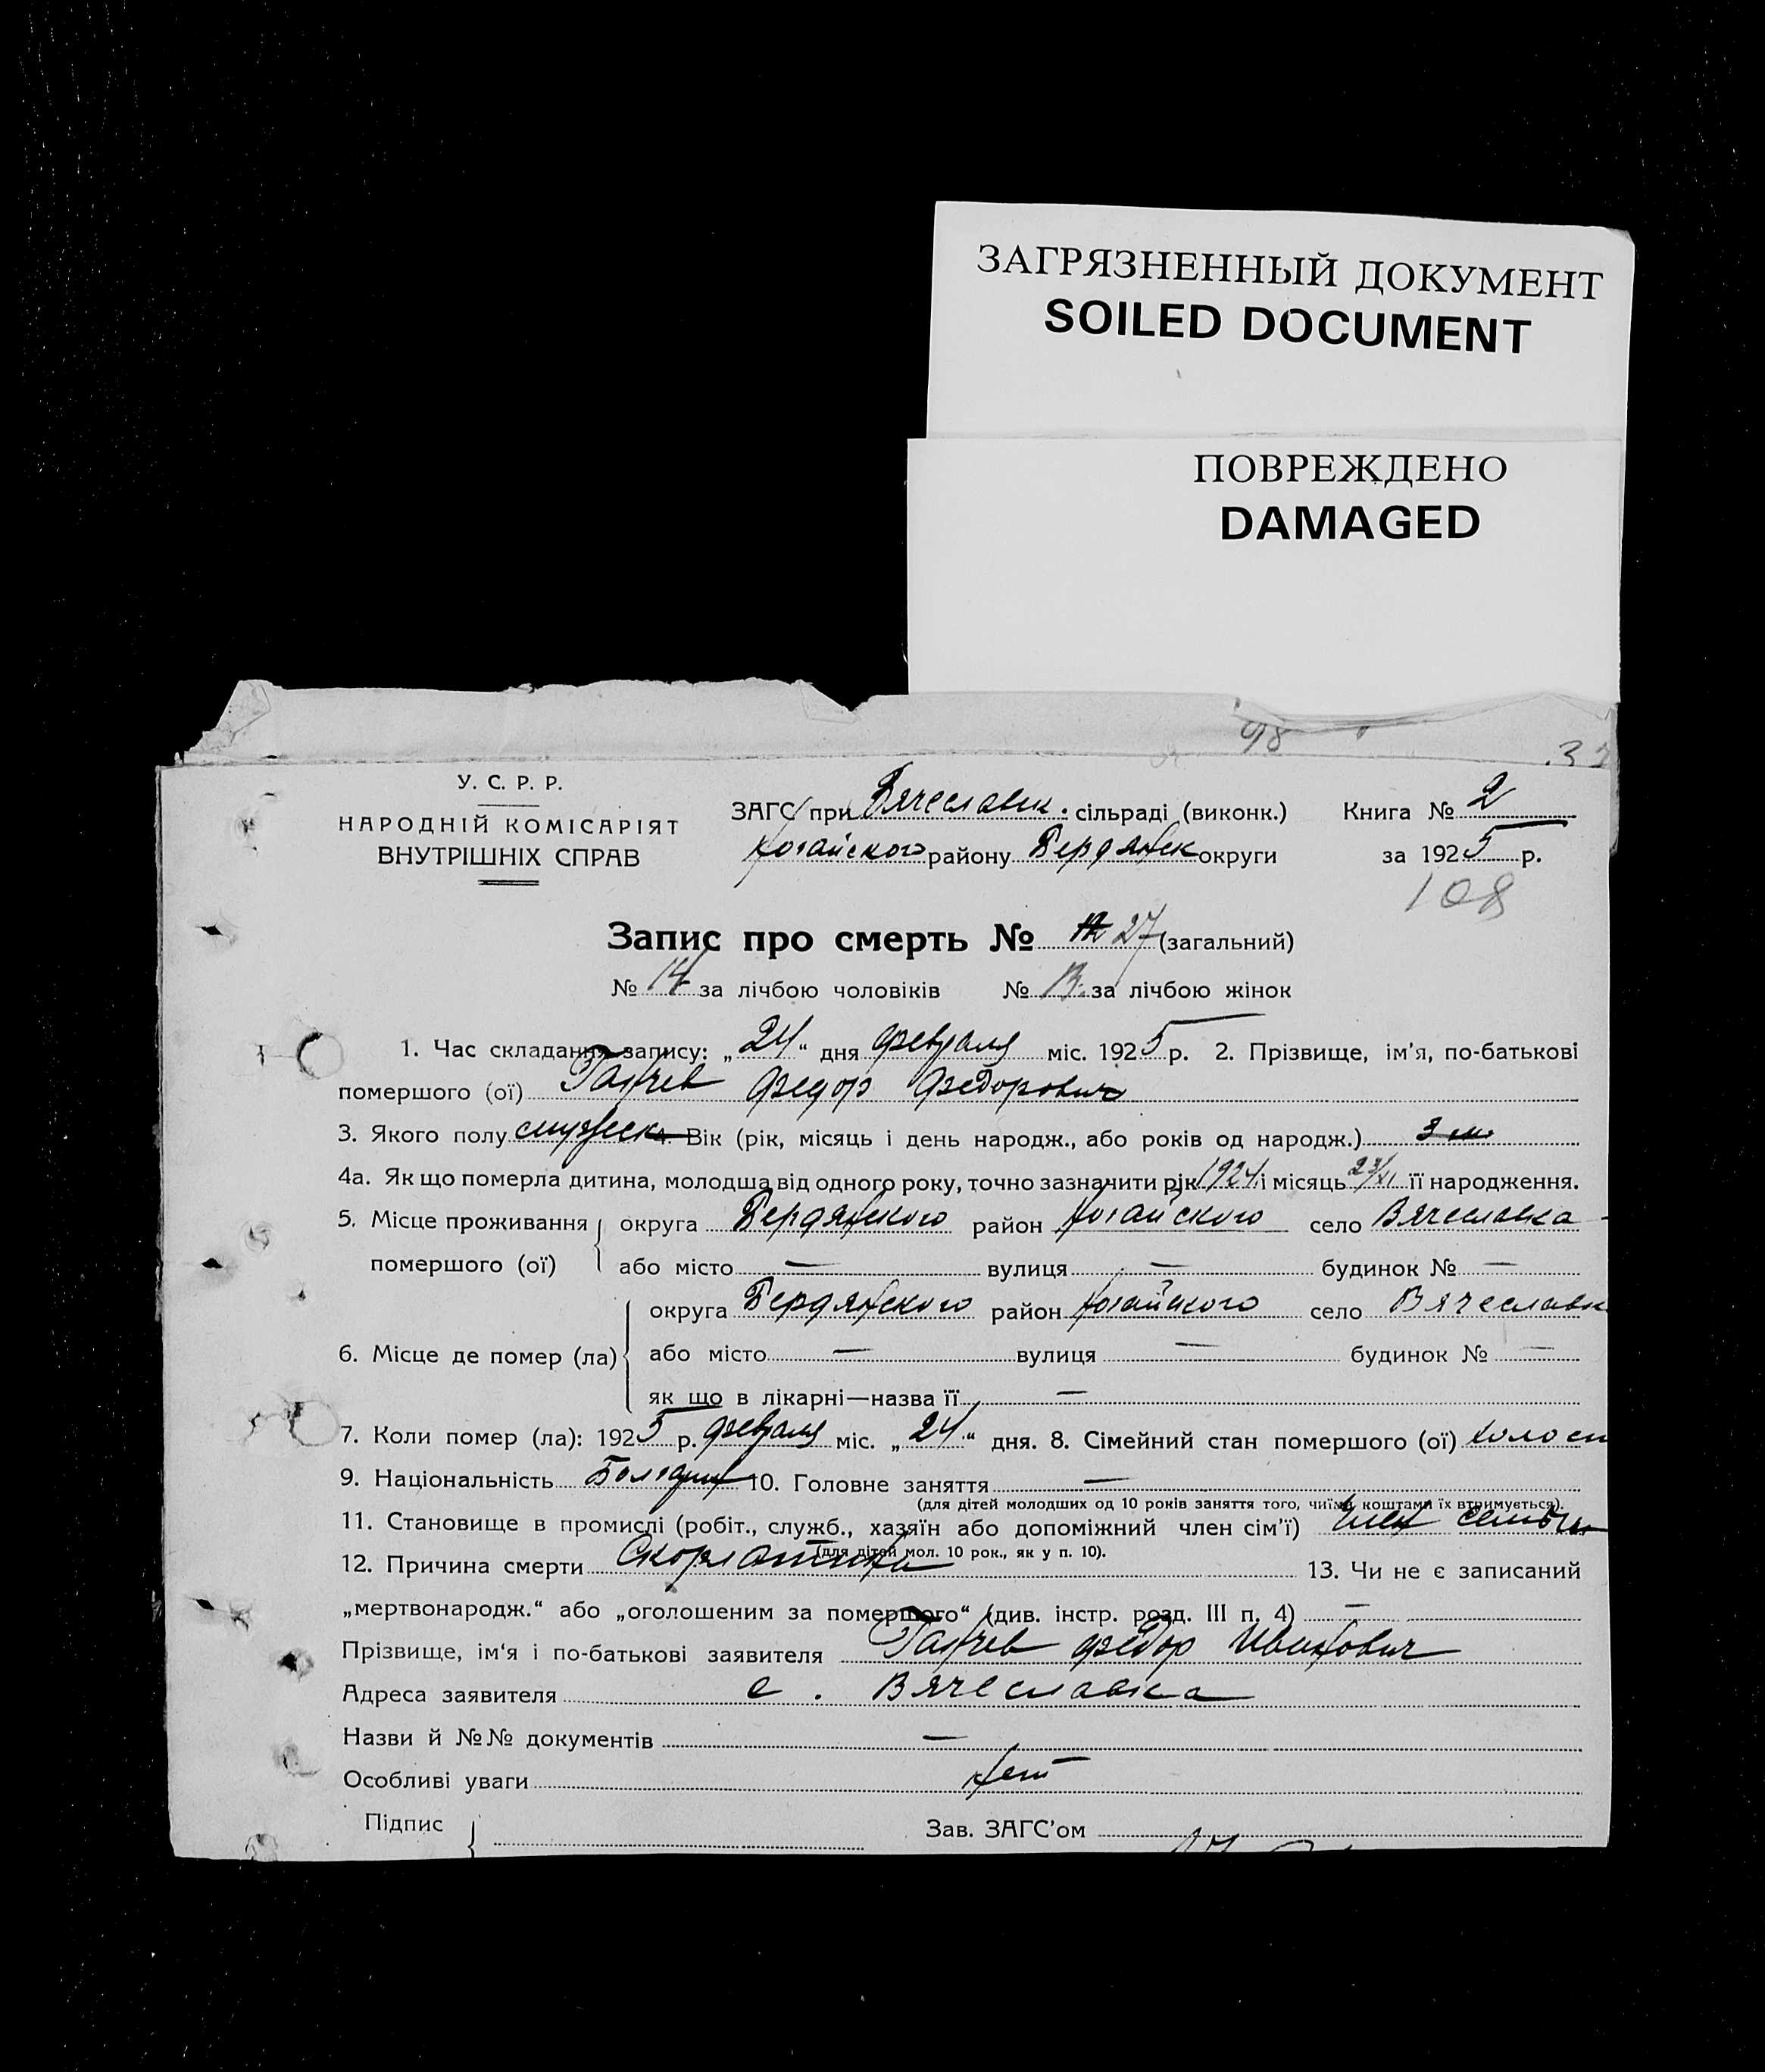 ЗАГРЯЗНЕННЫЙ ДОКУМЕНТ
SOILED DOCUMENT
ПОВРЕЖДЕНО
DAMAGED
98
У. С. Р. Р.
НАРОДНІЙ КОМІСАРІЯТ
ВНУТРІШНІХ СПРАВ
ЗАГС при Вячеславк. сільраді (виконк.) Книга № 2
Ногайского району Бердянск округи за 1925 р.
108
Запис про смерть № 27 (загальний)
№ 14 за лічбою чоловіків № 13 за лічбою жінок
1. Час складання запису: „24“ дня февраля міс. 1925 р. 2. Прізвище, ім’я, по-батькові
помершого (ої) Ганчев Федор Федорович
3. Якого полу мужеск 4. Вік (рік, місяць і день народж., або років од народж.) 3 м.
4а. Як що померла дитина, молодша від одного року, точно зазначити рік 1924 і місяць 23/XI її народження.
5. Місце проживання помершого (ої) округа Бердянского район Ногайского село Вячеславка
або місто — вулиця — будинок № —
6. Місце де помер (ла) округа Бердянского район Ногайского село Вячеславк
або місто — вулиця — будинок № —
як що в лікарні—назва її —
7. Коли помер (ла): 1925 р. февраля міс. „24“ дня. 8. Сімейний стан помершого (ої) холост
9. Національність Болгарин 10. Головне заняття —
(для дітей молодших од 10 років заняття того, чиїми коштами їх втримується).
11. Становище в промислі (робіт., служб., хазяїн або допоміжний член сім’ї) Член семьи
(для дітей мол. 10 рок., як у п. 10).
12. Причина смерти Скорлатина 13. Чи не є записаний
„мертвонародж.“ або „оголошеним за помершого“ (див. інстр. розд. III п. 4) —
Прізвище, ім‘я і по-батькові заявителя Ганчев Федор Иванович
Адреса заявителя с. Вячеславка
Назви й №№ документів —
Особливі уваги нет
Підпис Зав. ЗАГС’ом